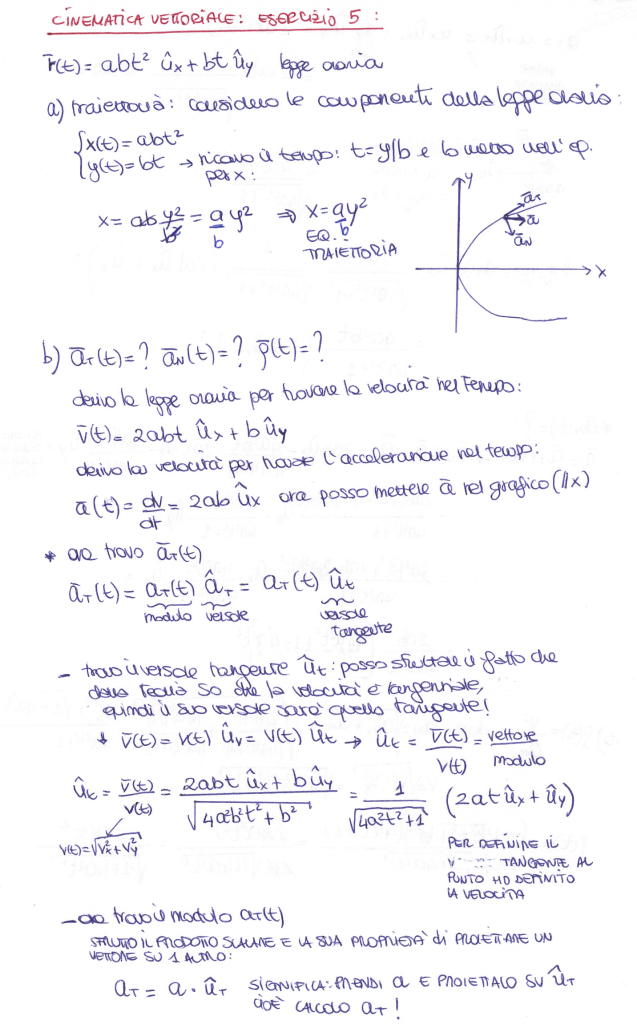 CINEMATICA VETTORIALE: ESERCIZIO 5:
r̄(t)= abt² ûx + bt ûy legge oraria
a) traiettoria: considero le componenti della legge oraria:
{x(t)= abt²
{y(t)= bt → ricavo il tempo: t= y/b e lo metto nell'eq.
per x:
x= ab y²/b² = a/b y² ⇒ x= a/b y²
EQ. TRAIETTORIA
y
āT
ā
āN
x
b) āT(t)=? āN(t)=? ρ̄(t)=?
derivo la legge oraria per trovare la velocità nel tempo:
v̄(t)= 2abt ûx + b ûy
derivo la velocità per trovare l'accelerazione nel tempo:
ā(t)= dv/dt = 2ab ûx ora posso mettere ā nel grafico (//x)
* ora trovo āT(t)
āT(t)= aT(t) âT = aT(t) ût
modulo versore versore tangente
- trovo il versore tangente ût: posso sfruttare il fatto che
dalla teoria so che la velocità è tangenziale,
quindi il suo versore sarà quello tangente!
↓ v̄(t)= v(t) ûv = v(t) ût → ût = v̄(t)/v(t) = vettore/modulo
ût = v̄(t)/v(t) = (2abt ûx + b ûy)/√(4a²b²t² + b²) = 1/√(4a²t²+1) (2at ûx + ûy)
v(t)=√(vx²+vy²)
PER DEFINIRE IL
TANGENTE AL
PUNTO HO DEFINITO
LA VELOCITÀ
- ora trovo il modulo aT(t)
SFRUTTO IL PRODOTTO SCALARE E LA SUA PROPRIETÀ di PROIETTARE UN
VETTORE SU 1 ALTRO:
aT = a · ûT SIGNIFICA: PRENDI a E PROIETTALO SU ûT
CIOÈ CALCOLO aT!